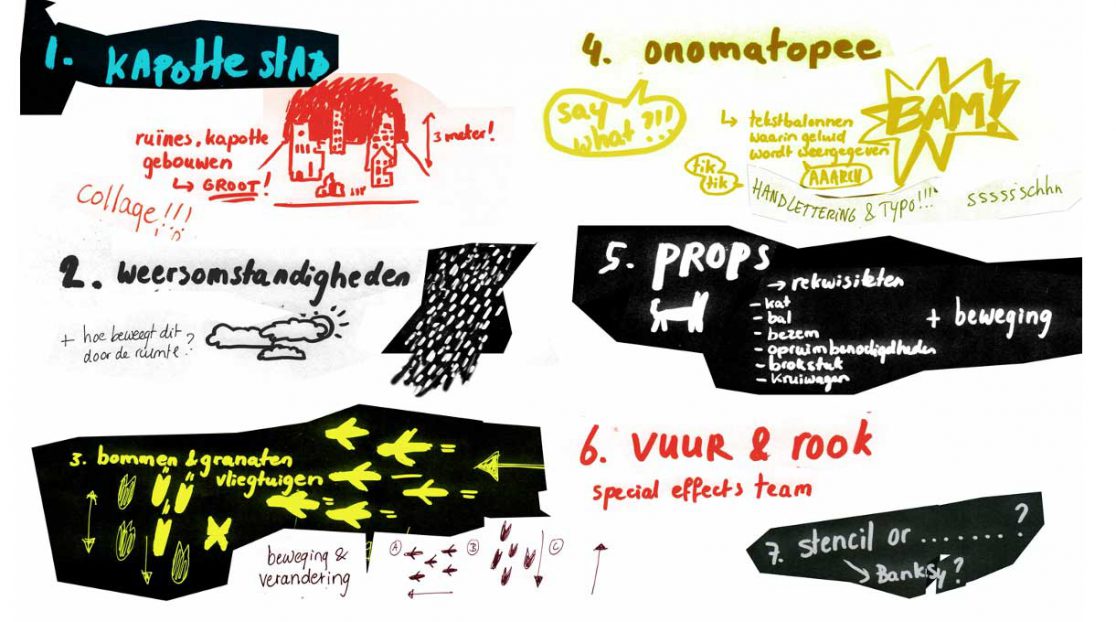 1. KAPOTTE STAD
ruïnes, kapotte
gebouwen
↳ GROOT!
3 meter!
Collage!!!
2. weersomstandigheden
+ hoe beweegt dit
door de ruimte?
3. bommen & granaten
vliegtuigen
beweging &
verandering
A
B
C
4. onomatopee
say
what?!!
↳ tekstbalonnen
waarin geluid
wordt weergegeven
BAM!
AAARCH
tik
tik
HANDLETTERING & TYPO!!!
sssss'schhn
5. PROPS
→ rekwisieten
- kat
- bal
- bezem
- opruimbenodigdheden
- brokstuk
- kruiwagen
+ beweging
6. VUUR & rook
special effects team
7. stencil or ........?
Banksy?